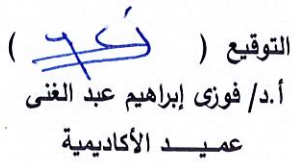 التوقيع ( )
أ.د/ فوزى إبراهيم عبد الغنى
عميد الأكاديمية